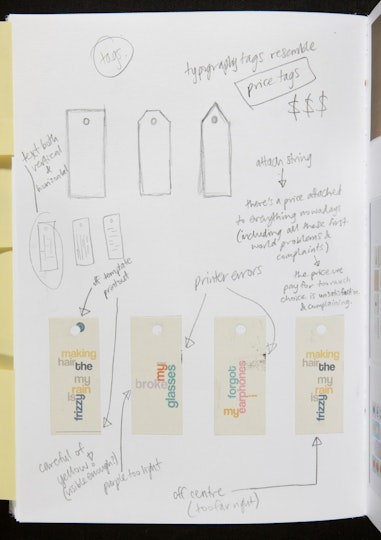 tags
typography tags resemble
price tags
$$$
text both
vertical
&
horizontal
attach string
there's a price attached
to everything nowadays
(including all these first
world problems &
complaints)
the price we
pay for too much
choice is
& complaining.
off template
printout
printer errors
making
hair the
my
rain
is
frizzy
my
broke
glasses
forgot
my
earphones
making
hair the
my
rain
is
frizzy
careful of
yellow
(visible enough?)
purple too light
off centre
(too far right)